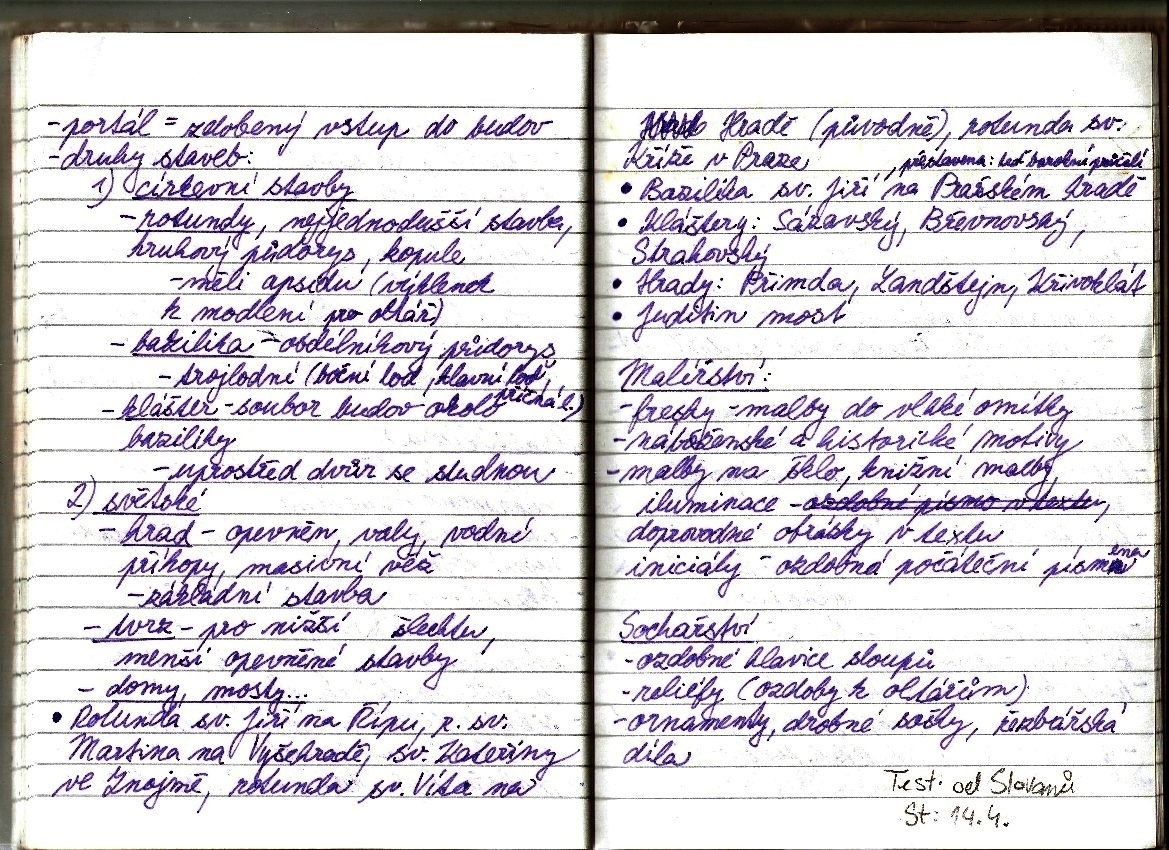 -portál = zdobený vstup do budov
-druhy staveb:
1) církevní stavby
-rotundy, nejjednodušší stavba,
kruhový půdorys, kopule
-měli apsidu (výklenek
k modlení pro oltář)
- bazilika - obdélníkový půdorys
- trojlodní (boční loď, hlavní loď,
příčná l.)
- klášter - soubor budov okolo
baziliky
- uprostřed dvůr se studnou
2) světské
- hrad - opevněn, valy, vodní
příkopy, masivní věž
-základní stavba
- tvrz - pro nižší šlechtu,
menší opevněné stavby
- domy, mosty...
• Rotunda sv. Jiří na Řípu, r. sv.
Martina na Vyšehradě, sv. Kateřiny
ve Znojmě, rotunda sv. Víta na
Hradě (původně), rotunda sv.
Kříže v Praze
, přestavena: teď barokní průčelí
• Bazilika sv. Jiří na Pražském hradě
• Kláštery: Sázavský, Břevnovský,
Strahovský
• Hrady: Přimda, Landštejn, Křivoklát
• Juditin most
Malířství:
-fresky - malby do vlhké omítky
-náboženské a historické motivy
-malby na sklo, knižní malby,
iluminace - ozdobné písmo v textu,
doprovodné obrázky v textu
iniciály - ozdobná počáteční písmena
Sochařství
-ozdobné hlavice sloupů
-reliéfy (ozdoby k oltářům)
-ornamenty, drobné sošky, řezbářská
díla
Test: od Slovanů
St: 14.4.